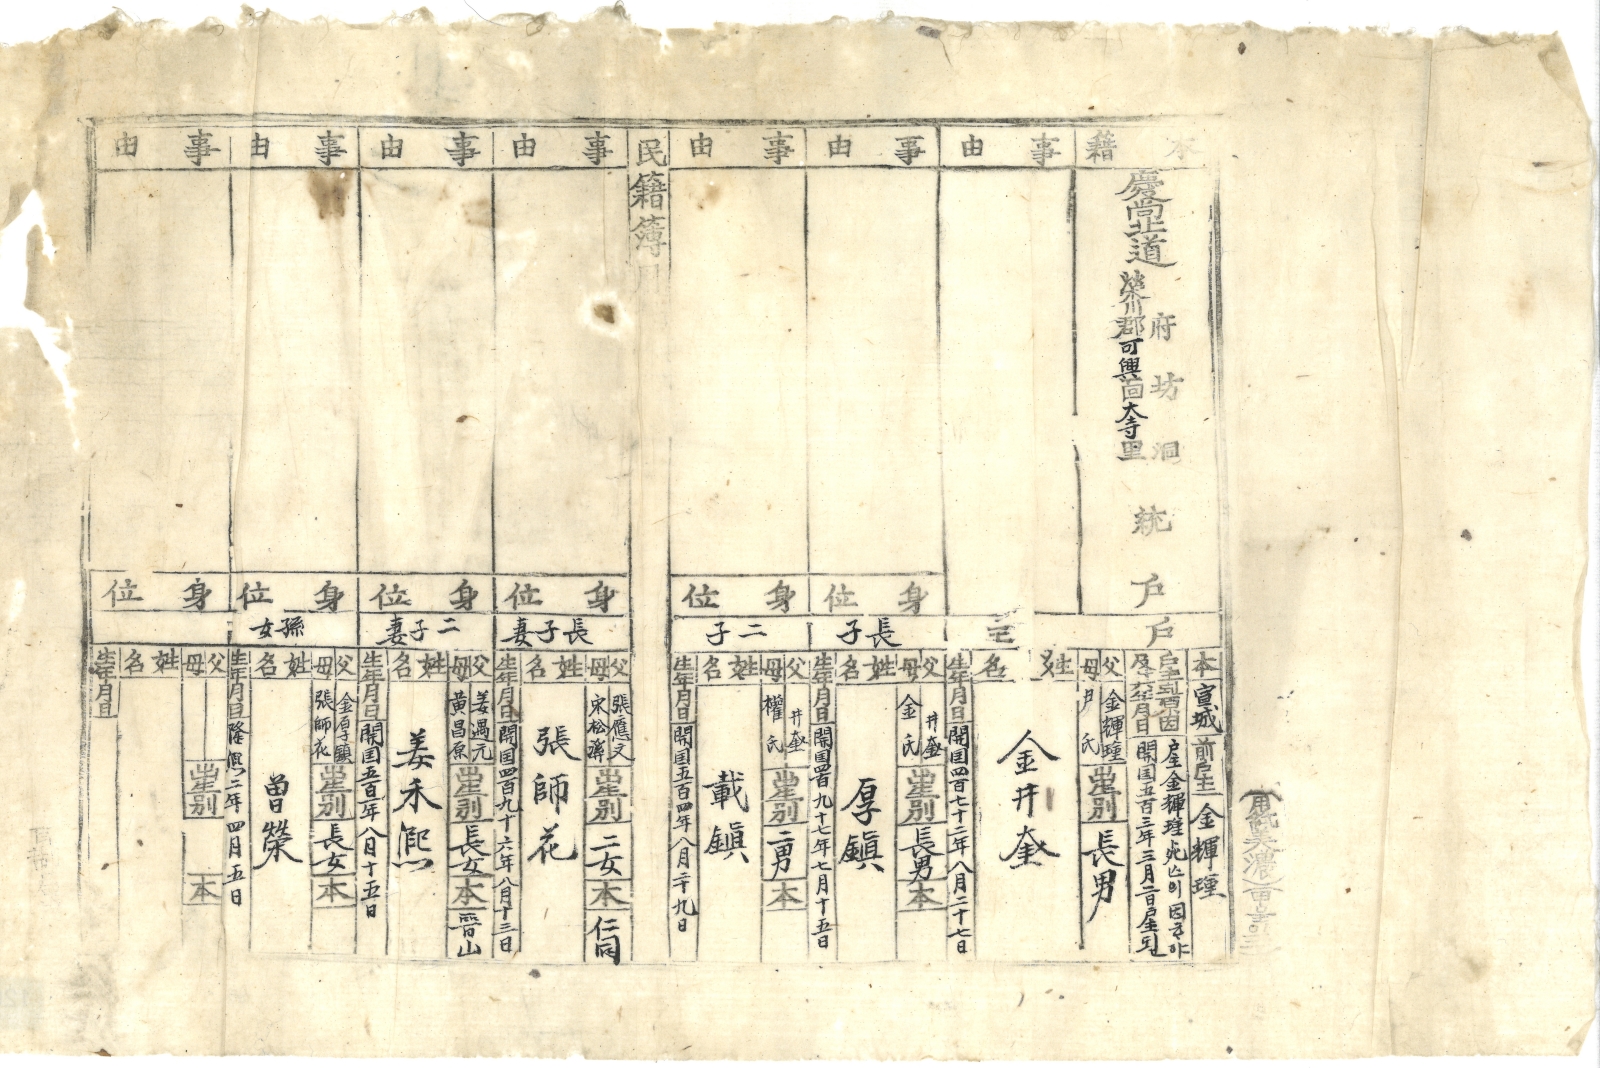 本籍
慶尚北道
榮川郡可興面大寺里
府坊洞統戶
戶主
本
宣城
前戶主
金輝瑾
戶主된原因及其年月日
戶主金輝瑾死亡의因하야
開国五百三年三月二日戶主된
父母
金輝瑾
尹氏
出生別
長男
姓名
金井奎
生年月日
開国四百七十二年八月二十七日
事由
事由
身位
長子
父母
井奎
金氏
出生別
長男
本
姓名
厚鎭
生年月日
開国四百九十七年七月十五日
事由
身位
二子
父母
井奎
權氏
出生別
二男
本
姓名
載鎭
生年月日
開国五百四年八月二十九日
民籍簿用
事由
身位
長子妻
父母
張應文
宋松濟
出生別
二女
本
仁同
姓名
張師花
生年月日
開国四百九十六年八月十三日
事由
身位
二子妻
父母
姜過元
黃昌原
出生別
長女
本
晋山
姓名
姜禾熙
生年月日
開国五百一年八月十五日
事由
身位
孫女
父母
金厚鎭
張師花
出生別
長女
本
姓名
曾榮
生年月日
隆熙二年四月五日
事由
身位
父母
出生別
本
姓名
生年月日